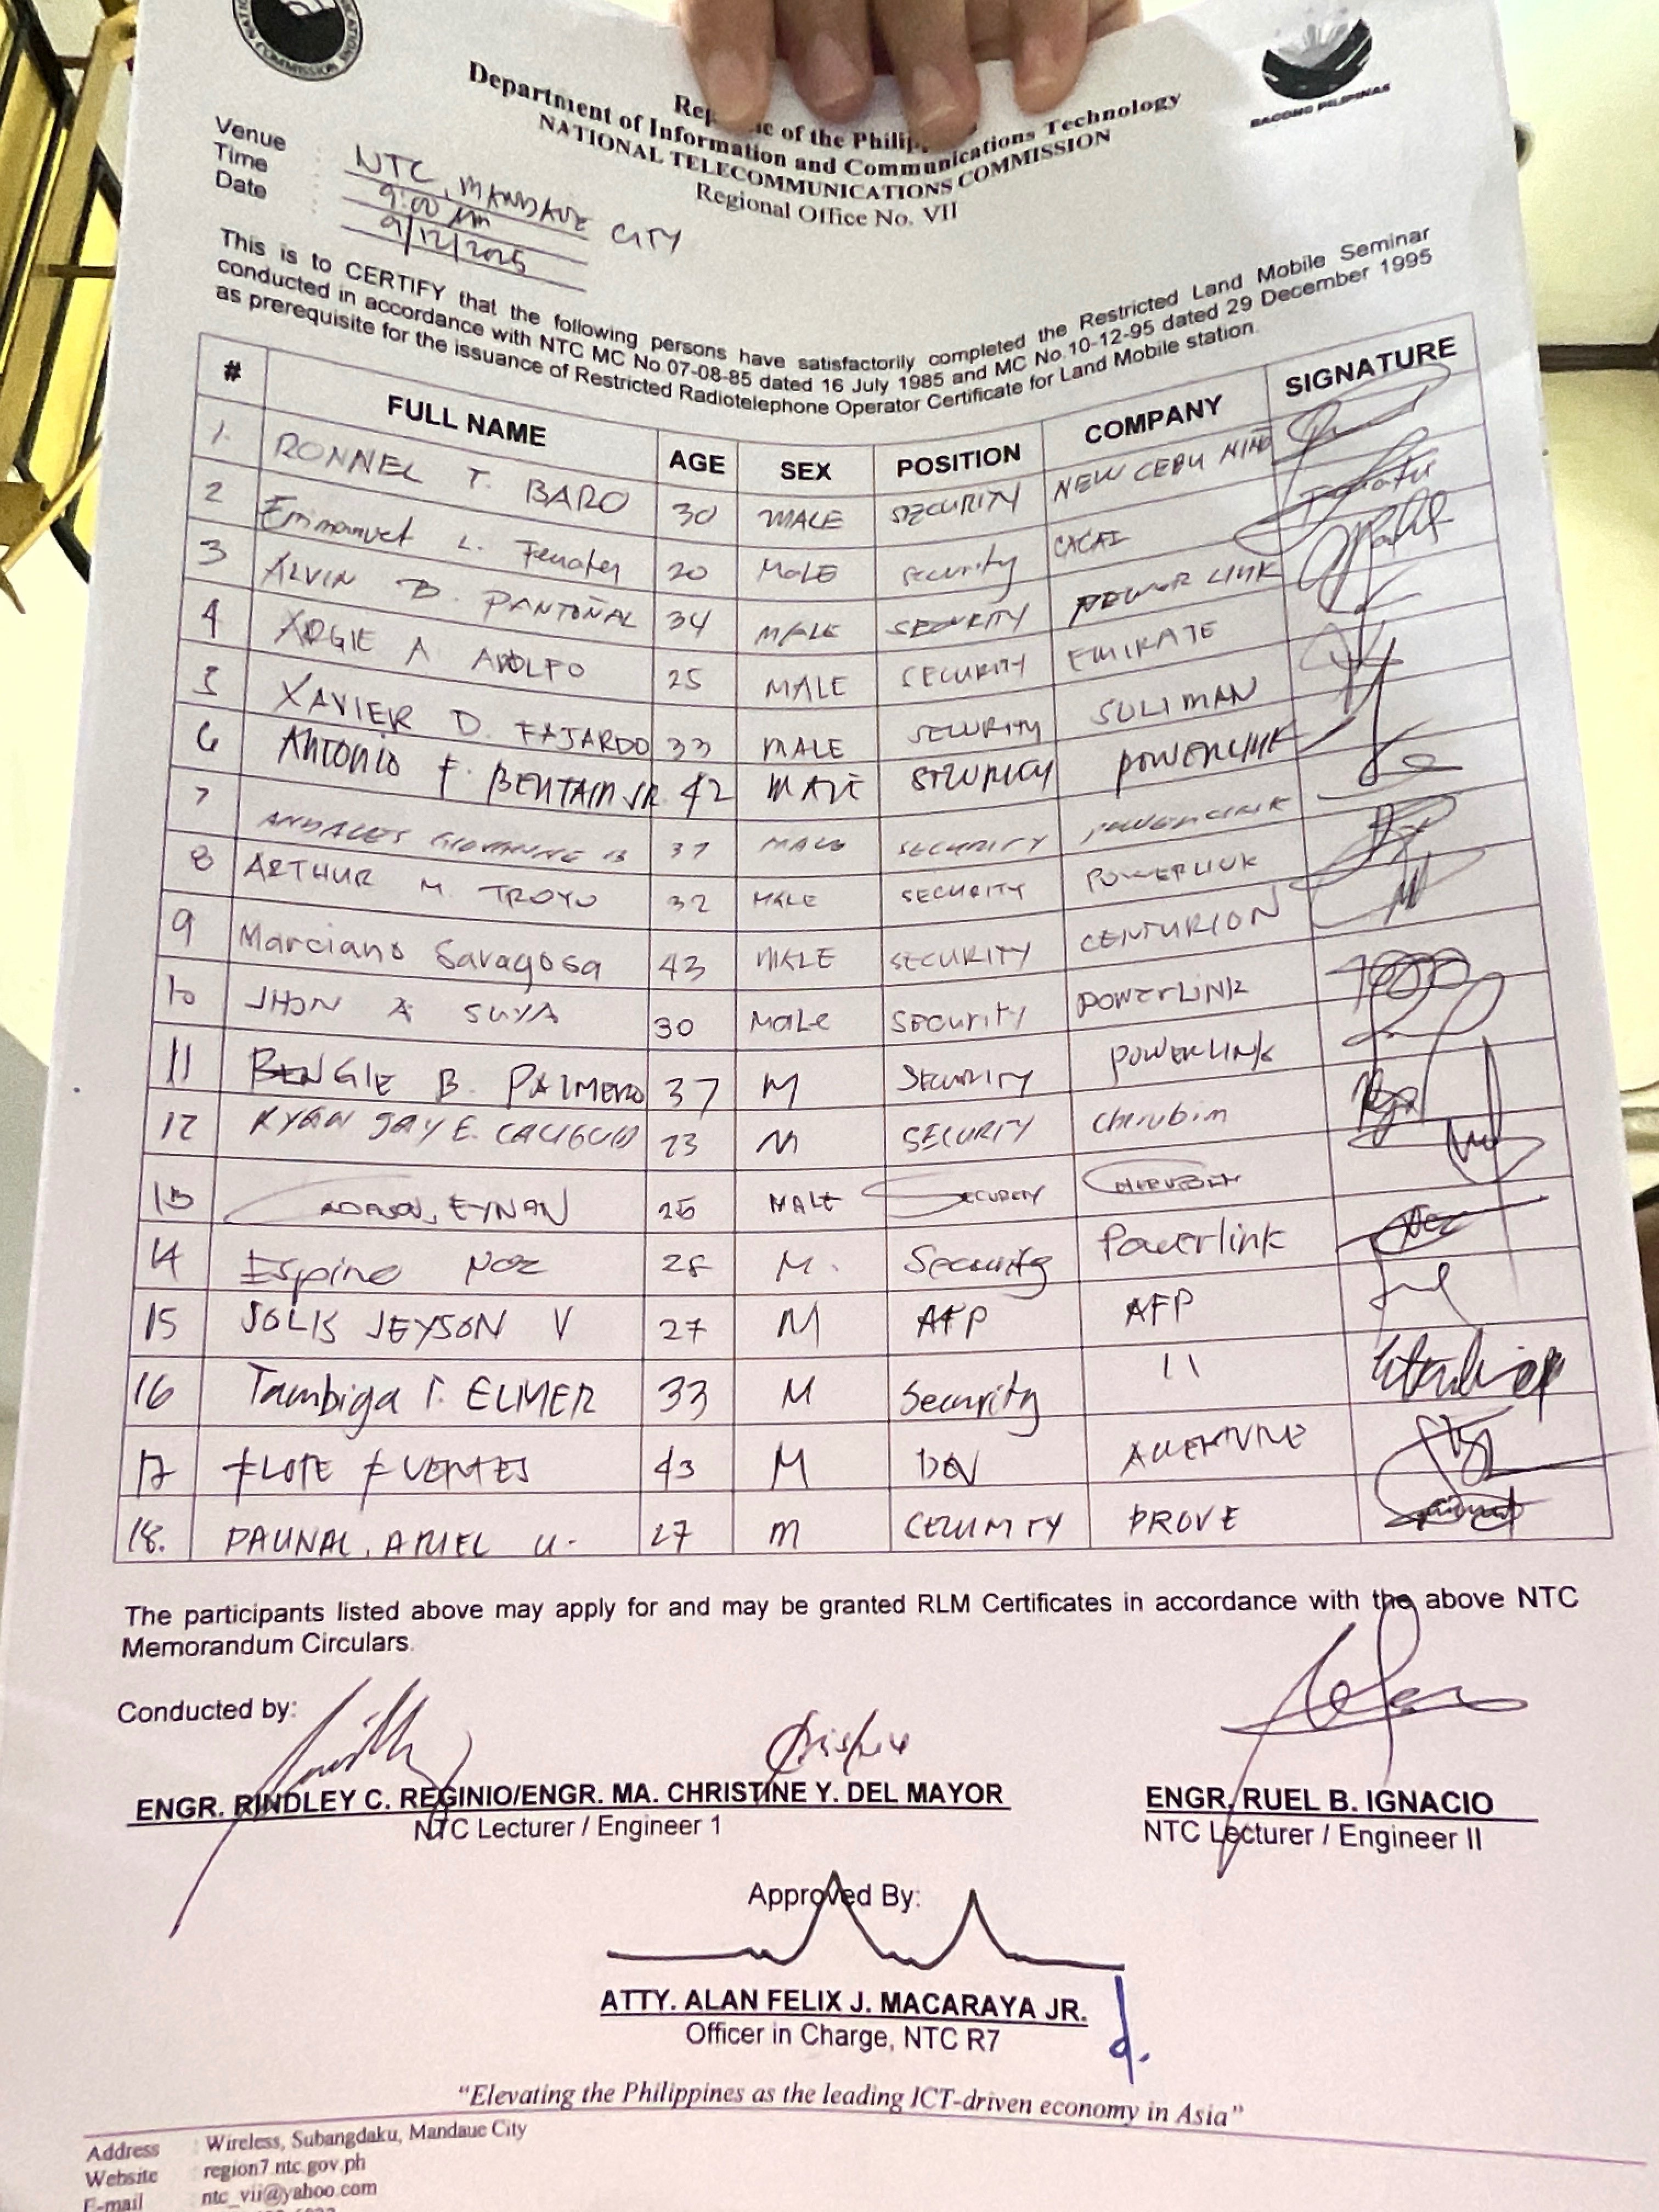 COMMISSION
BAGONG PILIPINAS
of the
Department of Information and Communications Technology
NATIONAL TELECOMMUNICATIONS COMMISSION
Regional Office No. VII
Venue : NTC, MANDAUE CITY
Time : 9:00 AM
Date : 9/12/2025
This is to CERTIFY that the following persons have satisfactorily completed the Restricted Land Mobile Seminar
conducted in accordance with NTC MC No.07-08-85 dated 16 July 1985 and MC No.10-12-95 dated 29 December 1995
as prerequisite for the issuance of Restricted Radiotelephone Operator Certificate for Land Mobile station.
# FULL NAME AGE SEX POSITION COMPANY SIGNATURE
1. RONNEL T. BARO 30 MALE SECURITY NEW CEBU
2 Emmanuel L. 20 MALE Security CACAI
3 ALVIN B. PANTOÑAL 34 MALE SECURITY LINK
4 ARGIE A ADOLFO 25 MALE SECURITY EMIRATE
5 XAVIER D. FAJARDO 33 MALE SECURITY SULIMAN
6 Antonio F. BENTAIN JR. 42 MALE POWERLINK
7 ANDALES GIOVANNE B 37 MALE SECURITY POWERLINK
8 ARTHUR M. TROYO 32 MALE SECURITY POWERLINK
9 Marciano Saragosa 43 MALE SECURITY CENTURION
10 JHON A SUYA 30 MALE Security POWERLINK
11 BENGIE B. PALMERO 37 M SECURITY POWERLINK
12 RYAN JAY E. 23 M SECURITY Cherubim
13 EYNAN MALE SECURITY CHERUBIM
14 Espino Noe 28 M. Security Powerlink
15 SOLIS JEYSON V 27 M AFP AFP
16 Tambiga I. ELMER 33 M Security 11
17 FLOTE FUENTES 43 M
18. PAUNAL, ARIEL U. 27 M PROVE
The participants listed above may apply for and may be granted RLM Certificates in accordance with the above NTC
Memorandum Circulars.
Conducted by:
ENGR. RINDLEY C. REGINIO/ENGR. MA. CHRISTINE Y. DEL MAYOR
NTC Lecturer / Engineer 1
ENGR. RUEL B. IGNACIO
NTC Lecturer / Engineer II
Approved By:
ATTY. ALAN FELIX J. MACARAYA JR.
Officer in Charge, NTC R7
"Elevating the Philippines as the leading ICT-driven economy in Asia"
Address : Wireless, Subangdaku, Mandaue City
Website region7.ntc.gov.ph
E-mail ntc_vii@yahoo.com